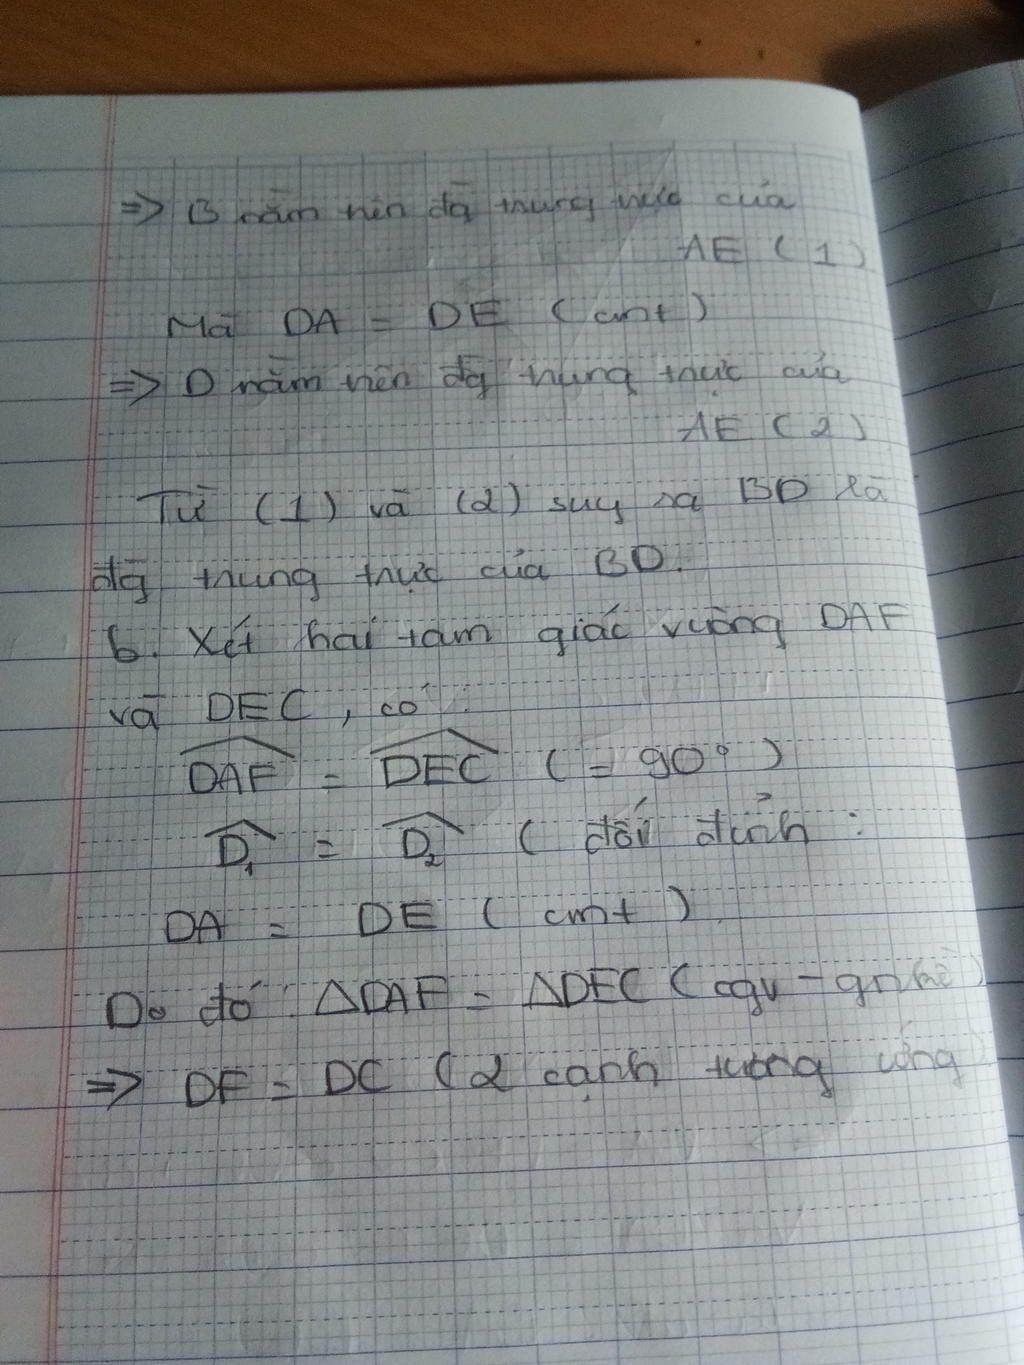 => B nằm trên đg trung trực của
AE (1)
Mà DA = DE (cmt)
=> D nằm trên đg trung trực của
AE (2)
Từ (1) và (2) suy ra BD là
đg trung trực của BD.
b. Xét hai tam giác vuông DAF
và DEC, có:
DAF = DEC (= 90°)
D1 = D2 (đối đỉnh :
DA = DE (cmt)
Do đó: ΔDAF = ΔDEC (cgv - gn
=> DF = DC (2 cạnh tương ứng)